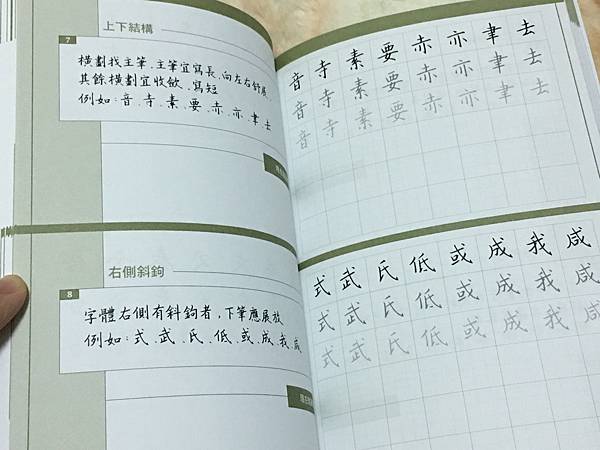 上下結構
7
橫劃找主筆、主筆宜寫長、向左右舒展、
其餘橫劃宜收歛、寫短
例如：音、寺、素、要、赤、亦、聿、去
右側斜鉤
8
字體右側有斜鉤者，下筆應展放
例如：式、武、氏、低、或、成、我、咸
音寺素要赤亦聿去
音寺素要赤亦聿去
音寺素要赤亦聿去
式武氏低或成我咸
式武氏低或成我咸
式武氏低或成我咸